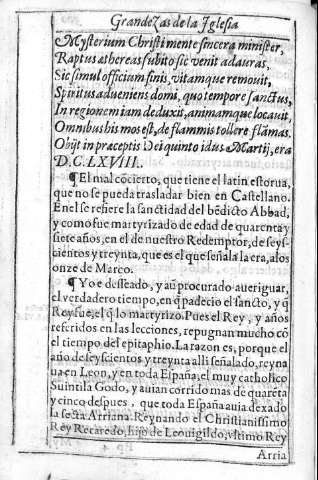 Grandezas de la Iglesia
Mysterium Christi mente sincera minister,
Raptus athereas subito sic venit ad auras,
Sic simul officium finis, vitamque remouit,
Spiritus adueniens domi, quo tempore sanctus,
In regionem iam deduxit, animamque locauit,
Omnibus his mos est, de flammis tollere flãmas.
Obijt in præceptis Dei quinto idus Martij, era
D.C.LXVIII.
¶ El mal cõcierto, que tiene el latin estorua,
que no se pueda trasladar bien en Castellano.
En el se refiere la sanctidad del bẽdicto Abbad,
y como fue martyrizado de edad de quarenta y
siete años, en el de nuestro Redemptor, de seys-
cientos y treynta, que es el que señala la era, a los
onze de Marco.
¶ Yo e desseado, y aũ procurado aueriguar,
el verdadero tiempo, en q̃ padecio el sancto, y q̃
Rey fue, el q̃ lo martyrizo. Pues el Rey, y años
referidos en las lecciones, repugnan mucho cõ
el tiempo del epitaphio. La razon es, porque el
año de seyscientos y treynta alli señalado, reyna
ua en Leon, y en toda España, el muy catholico
Suintila Godo, y auian corrido mas de quareta
y cinco despues, que toda España auia dexado
la secta Arriana. Reynando el Christianissimo
Rey Recaredo, hijo de Leouigildo, vltimo Rey
Arria